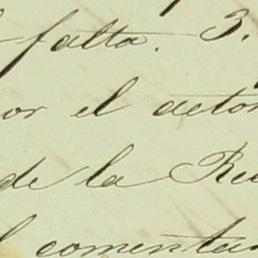 falta. 3.
or el actor
de la Re
l comenta